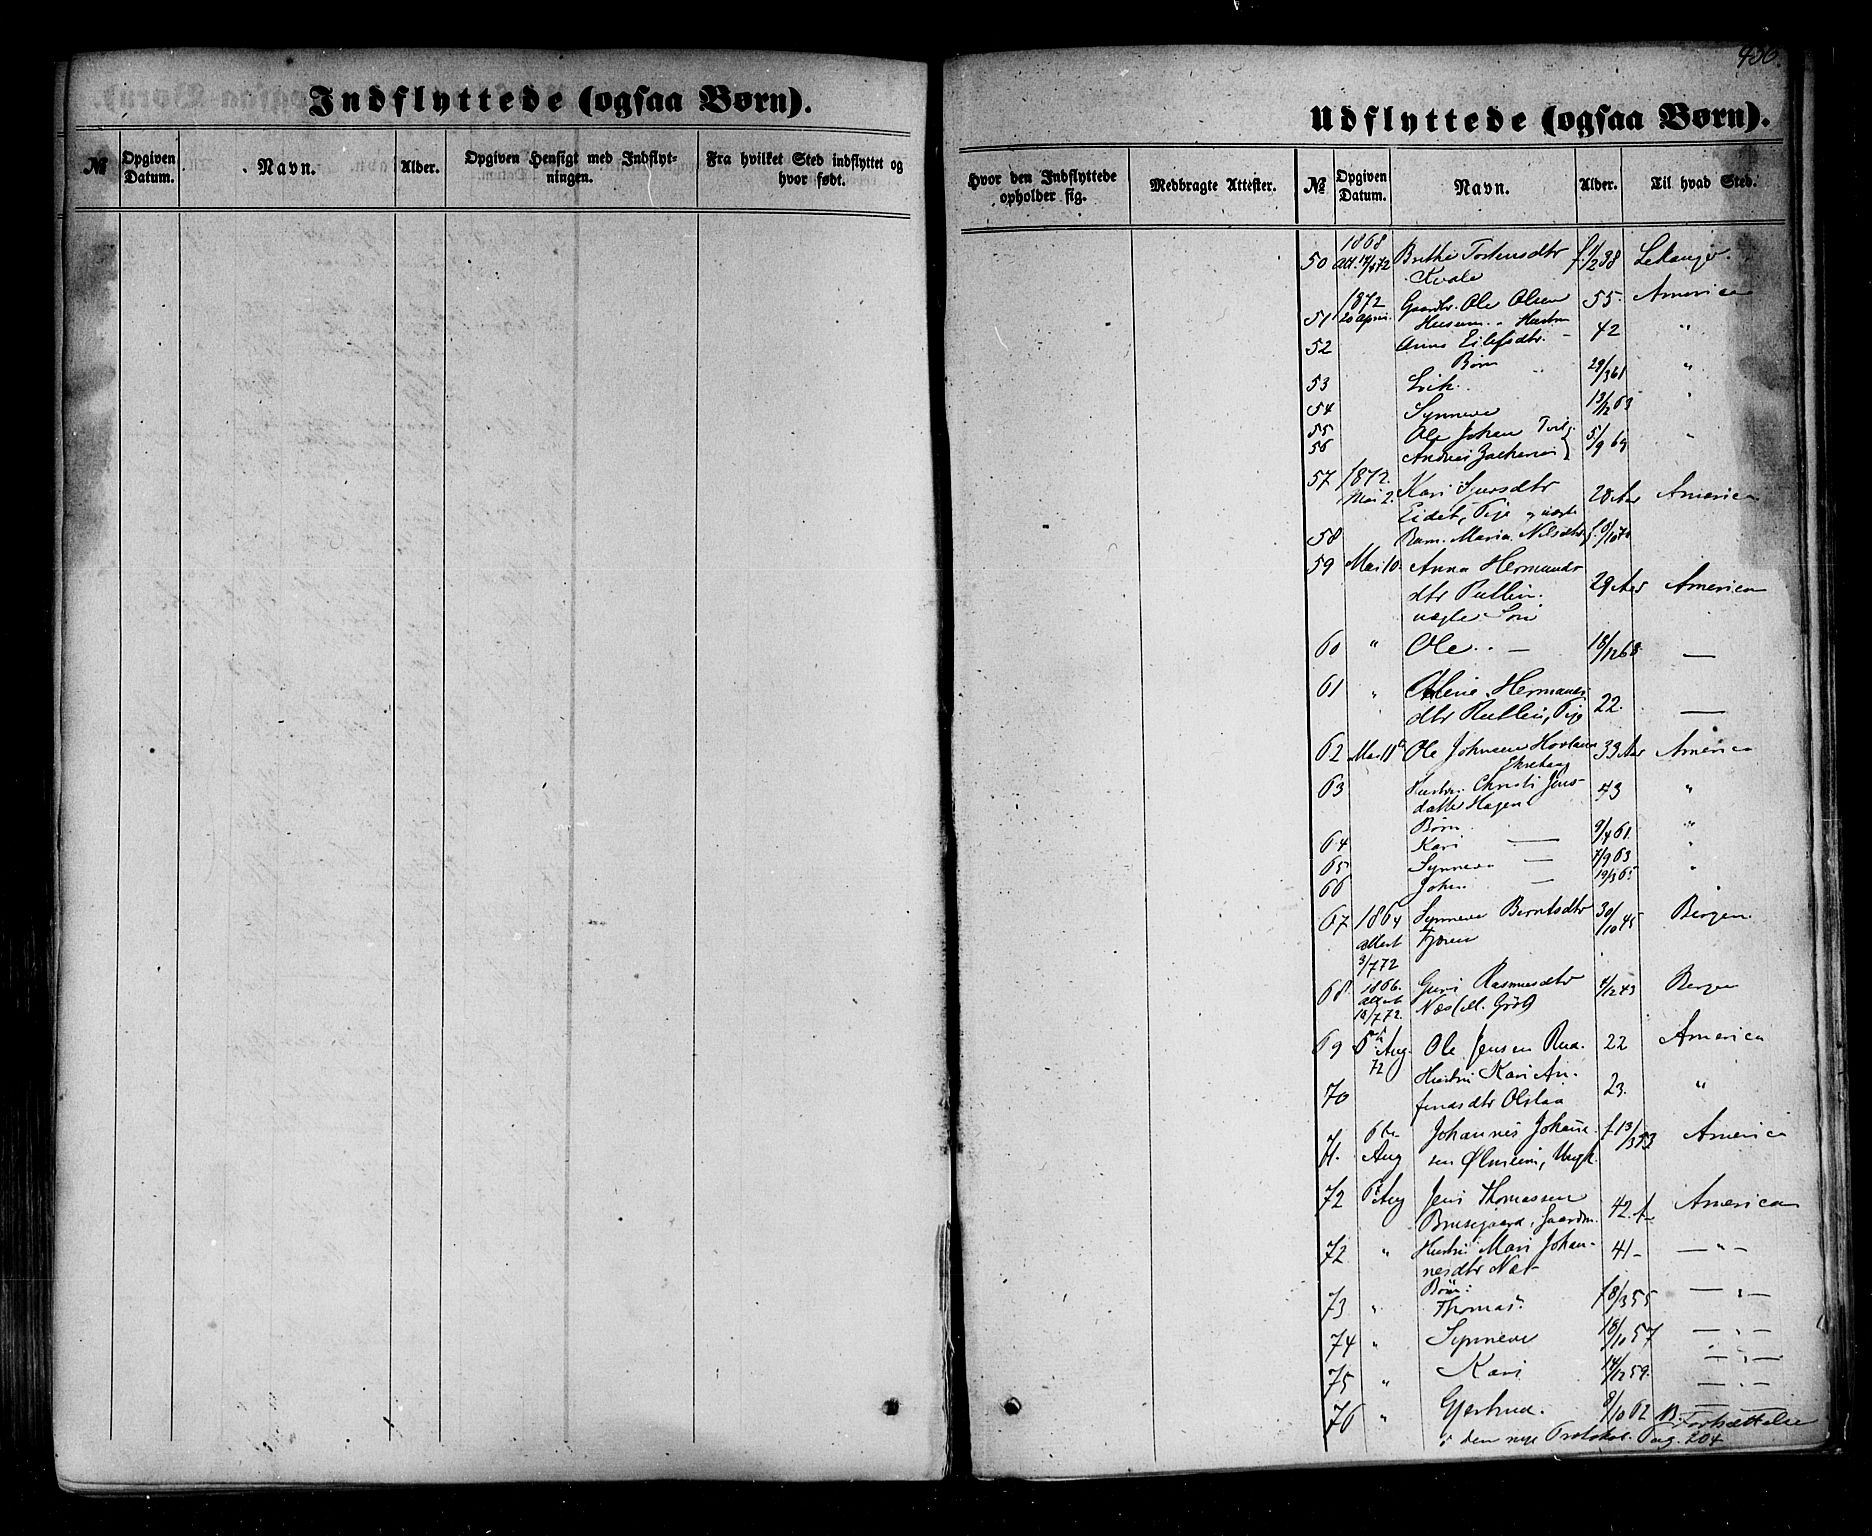 Indflyttede (ogsaa Børn).
№ Opgiven Datum. Navn. Alder. Opgiven Hensigt med Indflytningen. Fra hvilket Sted indflyttet og hvor født.
450.
Udflyttede (ogsaa Børn).
Hvor den Indflyttede opholder sig. Medbragte Attester. № Opgiven Datum. Navn. Alder. Til hvad Sted.
50 1868 Att. 17/4 72 Brithe Torstensdtr f. 1/2 38 Lekanger.
Kvale
51 1872 20 April. Gaardbr. Ole Olsen 55. America
Husum. Hustru
52 Anna Eilefsdtr. 42 "
Børn
53 Erik. 29/3 61 "
54 Synneve 13/12 63 "
55 Ole Johan Tvil.
56 Andreas Zacharias 5/9 69 "
57 1872. Mai 2. Kari Sjursdtr 28 Aar America
Eidet, Pige uægte
58 Barn. Maria Nilsdtr f. 9/10 70
59 Mai 10. Anna Hermunds
dtr Rutlin. 29 Aar America
uægte Søn
60 " Ole. — 18/12 68 —
61 " Hermunds
dtr Rutlin, Pige 22. —
62 Mai 11te Ole Johnsen Hovland 33 Aar America
63 Hustru Christi Jens 43 "
datter Hagen
Børn "
64 Kari — 9/4 61. "
65 Synneve — 7/9 63 "
66 John — 19/3 65
67 1864 Synneve Berntsdtr 30/10 45 Bergen
attest
3/7 72
68 1866. Guri Rasmusdtr 4/12 43 Bergen
attest Næs
12/7 72.
69 6te Aug. Ole Jensen Rud. 22 America
72
70 Hustru Kari An- 23. "
finasdtr Olstaa
71. 6te Johannes Johann f. 13/3 53 America
Aug sen Ølmeim, Ungk.
72 6t Aug Jens Thomassen 42. A— America
Brusegaard, Gaardm.
72 " Hustru Mari Johan- 41- — " —
nesdtr Næs
Børn.
73 " Thomas. 18/3 55 — " —
74 " Synneve 18/10 57 — " —
75 " Kari 14/12 59. — " —
76 " Gjertrud. 8/10 62 — —
Fortsættelse
i den nye Protokol. Pag. 204